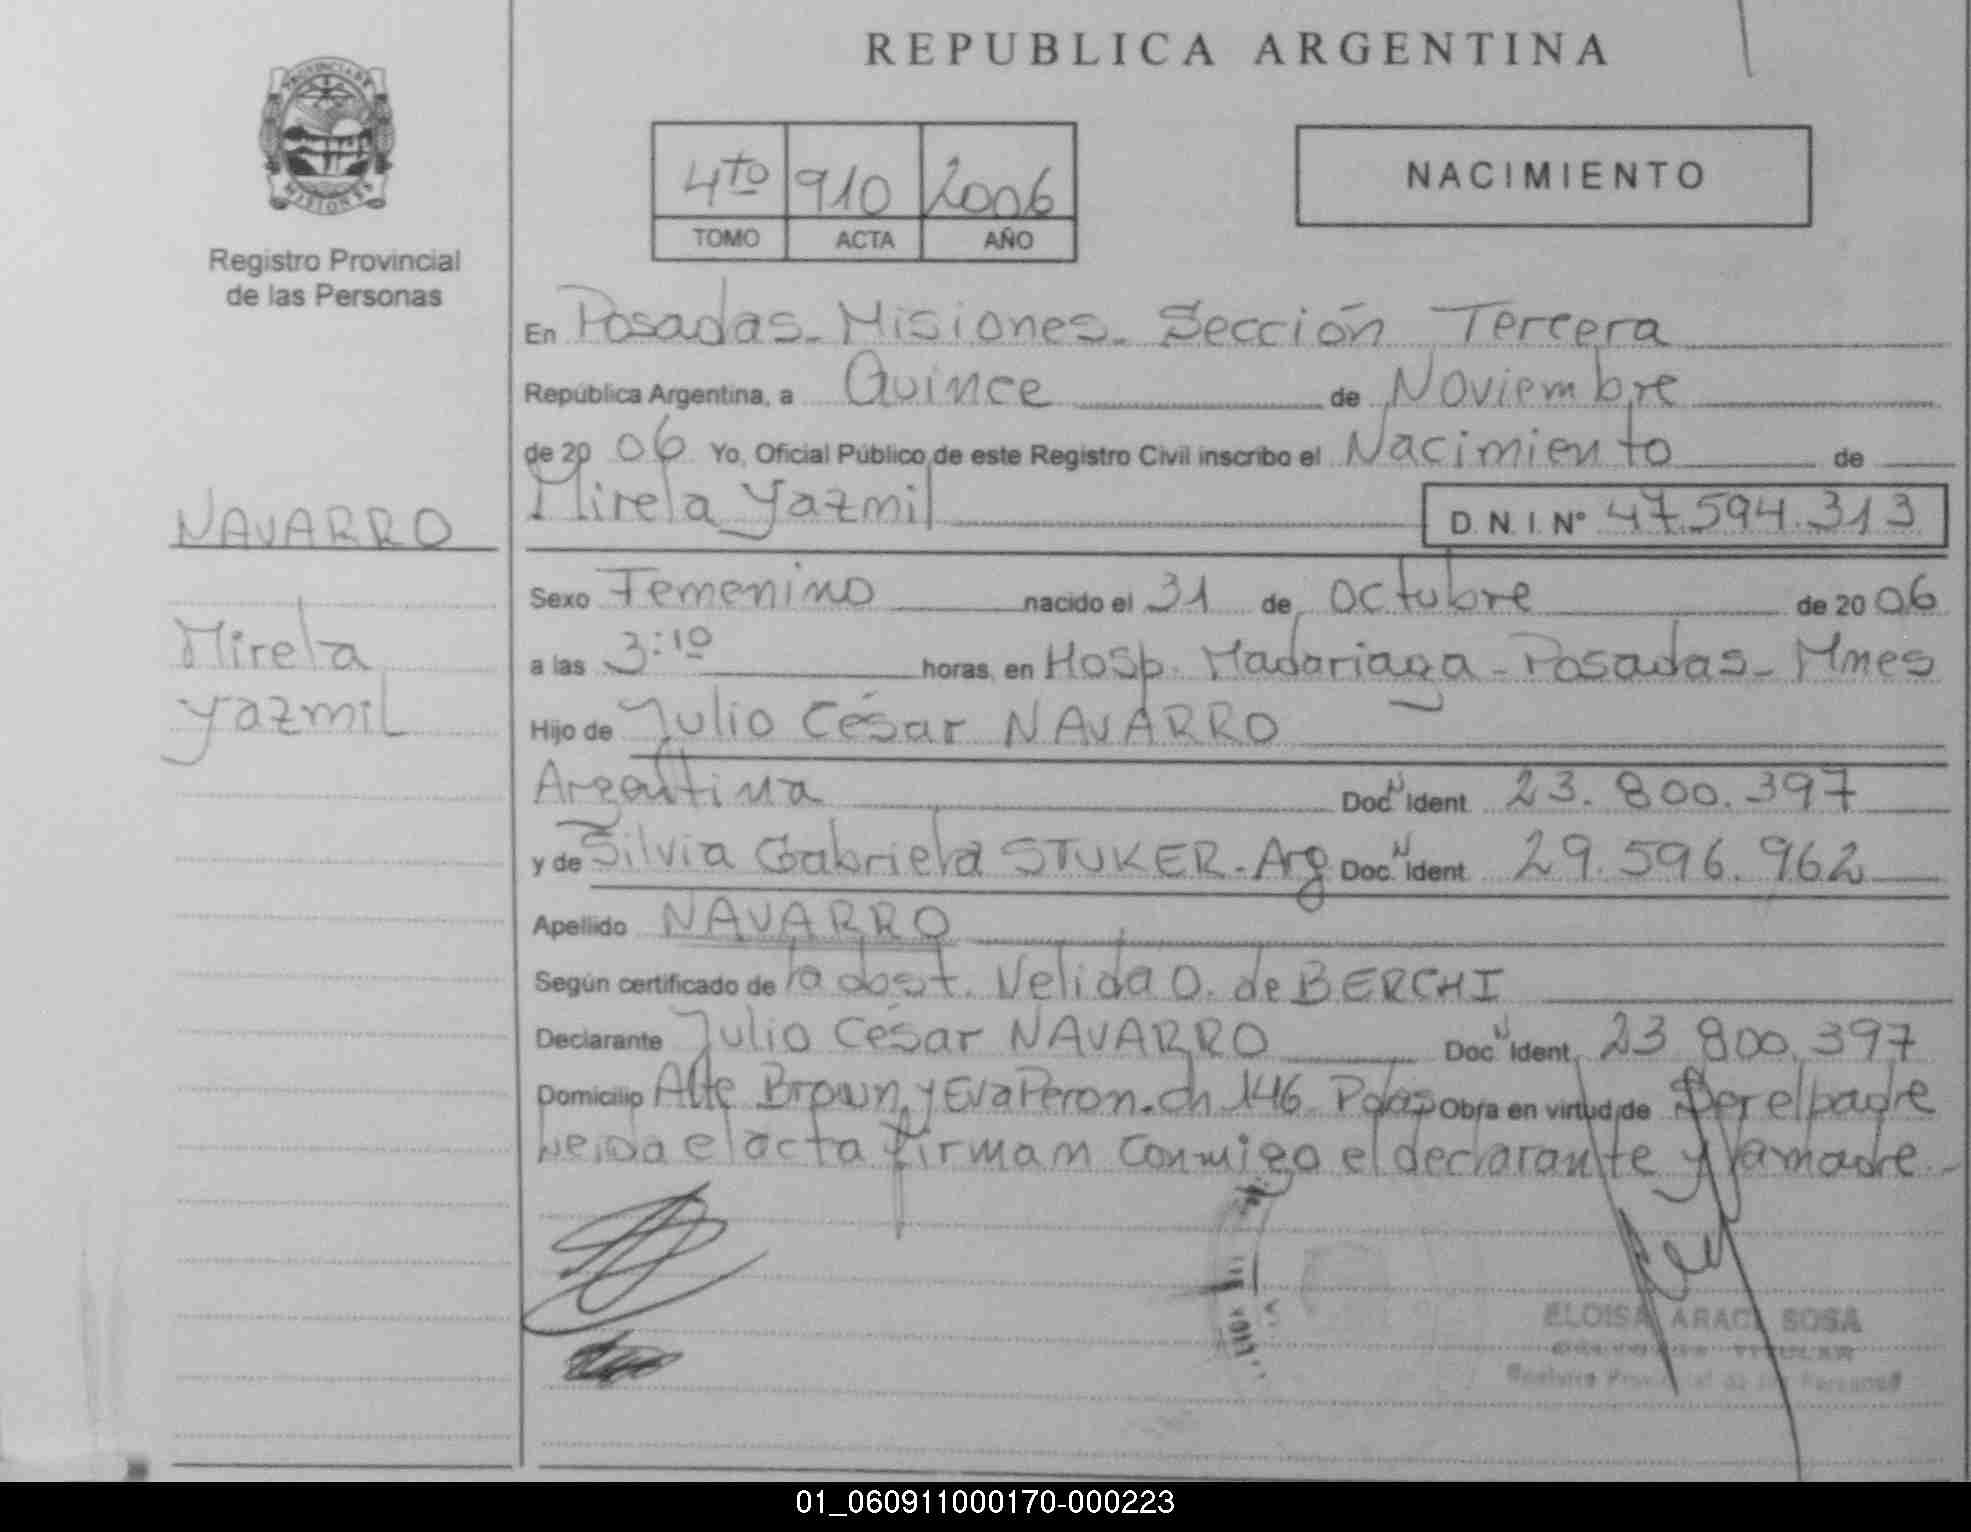 REPUBLICA ARGENTINA
PROVINCIA DE
MISIONES
Registro Provincial
de las Personas
4to 910 2006
TOMO ACTA AÑO
NACIMIENTO
En Posadas - Misiones - Sección Tercera
República Argentina, a Quince de Noviembre
de 2006 Yo, Oficial Público de este Registro Civil inscribo el Nacimiento de
Mirela Yazmil D.N.I. Nº 47.594.313
NAVARRO
Mirela
Yazmil
Sexo Femenino nacido el 31 de Octubre de 2006
a las 3:10 horas, en Hosp. Madariaga - Posadas - Mnes
Hijo de Julio César NAVARRO
Argentina Doc. N Ident. 23.800.397
y de Silvia Gabriela STUKER - Arg Doc. N Ident. 29.596.962
Apellido NAVARRO
Según certificado de la obst. Nelida O. de BERCHI
Declarante Julio César NAVARRO Doc. N Ident. 23.800.397
Domicilio Alte Brown y Eva Peron. ch 146 Pdas Obra en virtud de Ser el padre
Leida el acta firman conmigo el declarante y la madre
ELOISA ARACI SOSA
TITULAR
Registro Provincial de las Personas
01_060911000170-000223